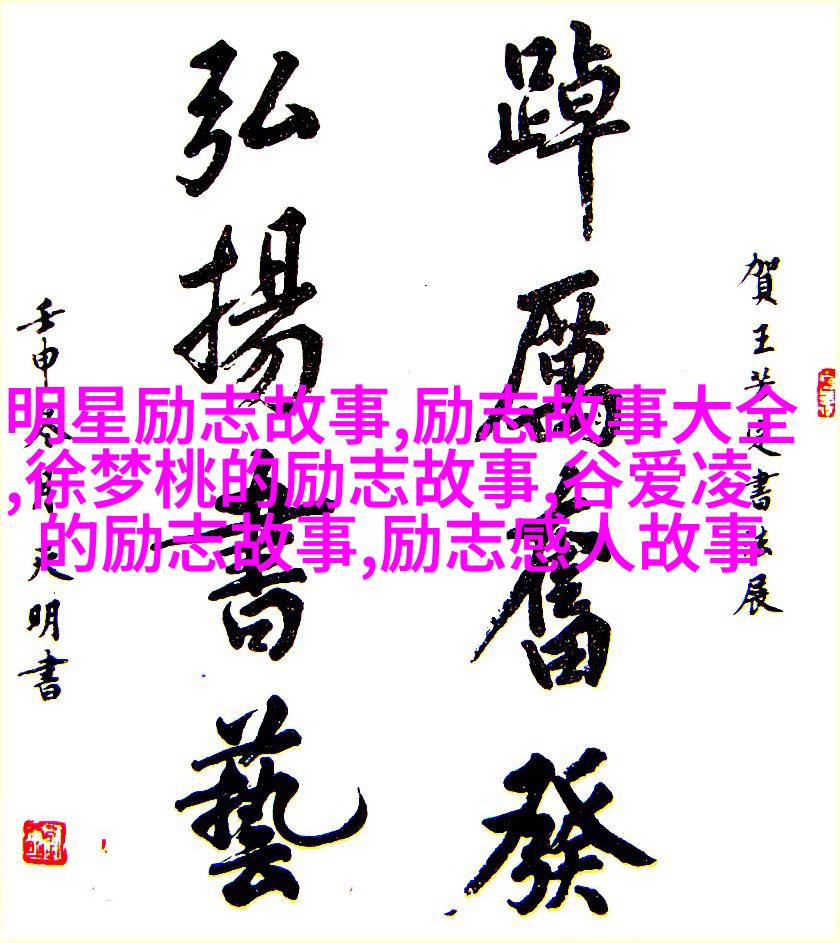 賀王芳定書法展
踔厲奮發
弘揚書藝
壬申冬月天明書
明星励志故事,励志故事大全
,徐梦桃的励志故事,谷爱凌
的励志故事,励志感人故事